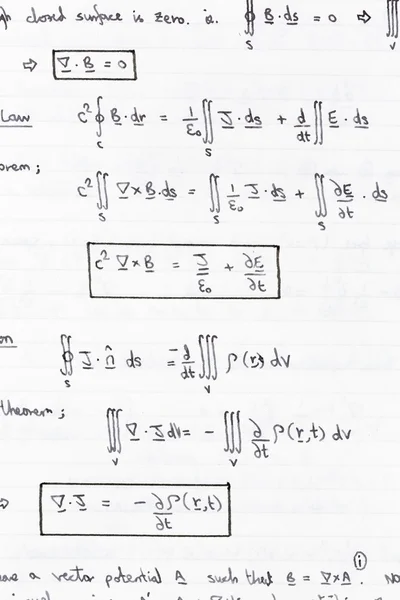 closed surface is zero. ie. ∮_S B·ds = 0 ⇒ ∭
⇒ ∇·B = 0
Law c² ∮_c B·dr = 1/ε₀ ∬_S J·ds + d/dt ∬_S E·ds
c² ∬_S ∇×B·ds = ∬_S 1/ε₀ J·ds + ∬_S ∂E/∂t · ds
c² ∇×B = J/ε₀ + ∂E/∂t
∯_S J·n̂ ds = -d/dt ∭_V ρ(r) dV
theorem; ∭_V ∇·J dV = - ∭_V ∂/∂t ρ(r,t) dV
⇒ ∇·J = -∂ρ(r,t)/∂t
①
a vector potential A such that B = ∇×A.